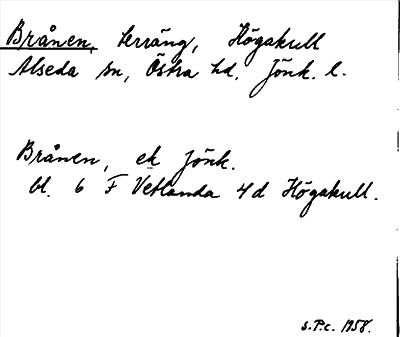 Brånen, terräng, Högakull
Alseda sn, Östra hd. Jönk. l.
Brånen, ek Jönk.
bl. 6 F Vetlanda 4d Högakull.
s.P.c. 1958.